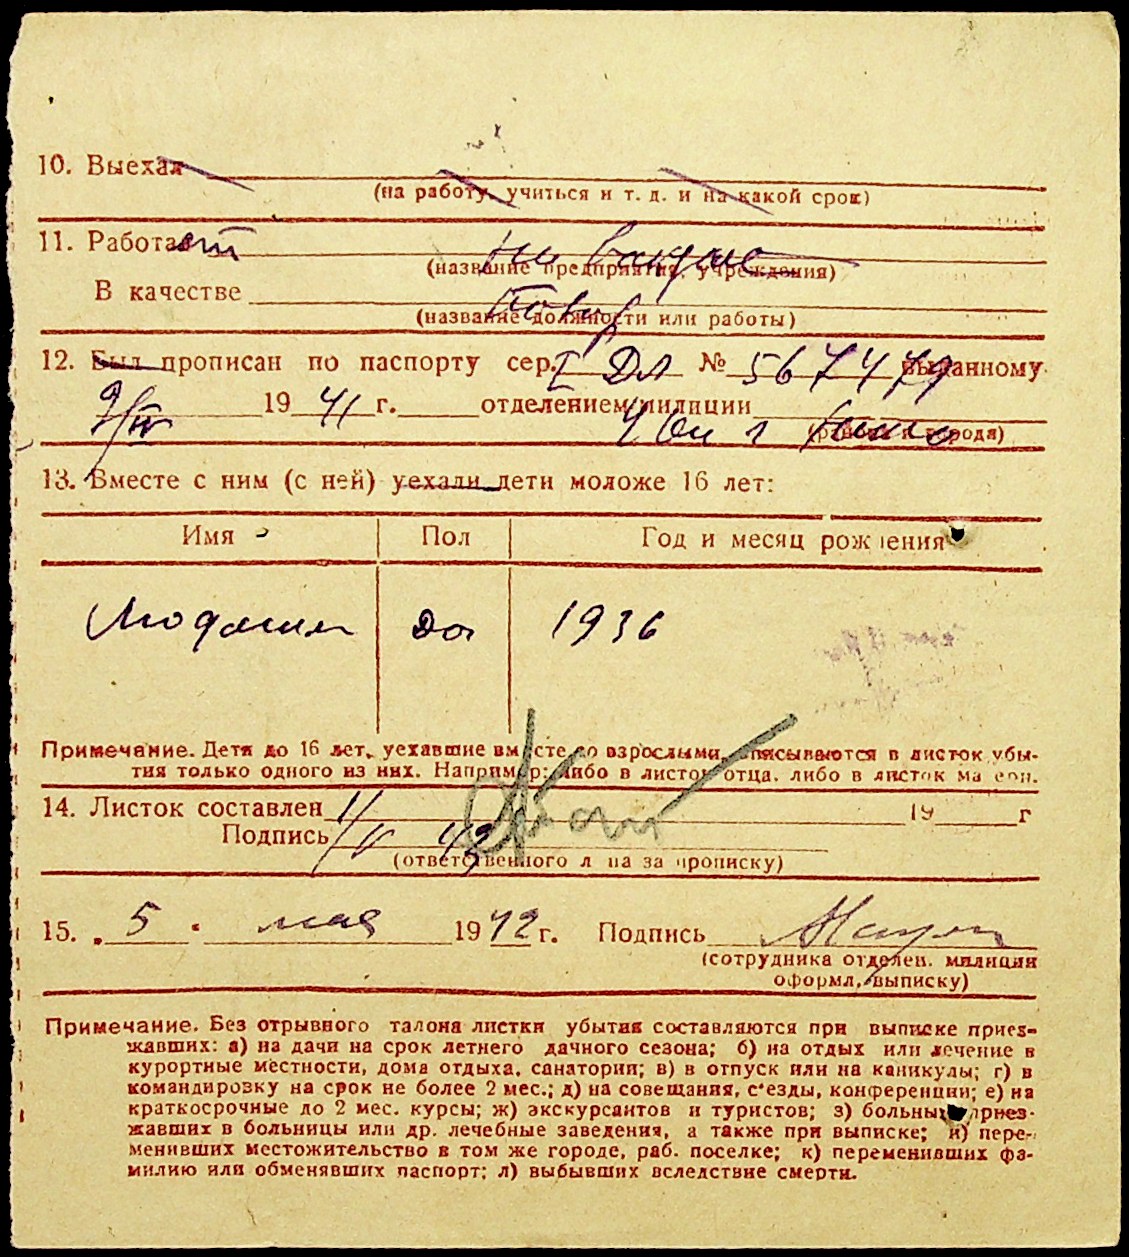 10. Выехал
(на работу, учиться и т. д. и на какой срок)
11. Работает
(название предприятия, учреждения)
В качестве
(название должности или работы)
12. Был прописан по паспорту сер. I ДЛ № 567479 выданному
9/IV 1941 г. отделением милиции
(района и города)
13. Вместе с ним (с ней) уехали дети моложе 16 лет:
Имя Пол Год и месяц рождения
Людмила 1936
Примечание. Дети до 16 лет, уехавшие вместе со взрослыми, вписываются в листок убы-
тия только одного из них. Например: либо в листок отца, либо в листок матери.
14. Листок составлен 1/V 42 19 г
Подпись
(ответственного лица за прописку)
15. 5 мая 1942 г. Подпись
(сотрудника отделен. милиции
оформл. выписку)
Примечание. Без отрывного талона листки убытия составляются при выписке приез-
жавших: а) на дачи на срок летнего дачного сезона; б) на отдых или лечение в
курортные местности, дома отдыха, санатории; в) в отпуск или на каникулы; г) в
командировку на срок не более 2 мес.; д) на совещания, с'езды, конференции; е) на
краткосрочные до 2 мес. курсы; ж) экскурсантов и туристов; з) больных, приез-
жавших в больницы или др. лечебные заведения, а также при выписке; и) пере-
менивших местожительство в том же городе, раб. поселке; к) переменивших фа-
милию или обменявших паспорт; л) выбывших вследствие смерти.